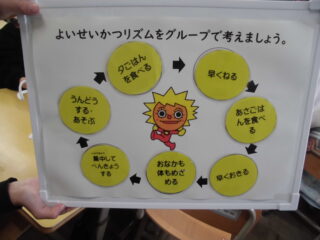 よいせいかつリズムをグループで考えましょう。
夕ごはん
を食べる
早くねる
あさごは
んを食べ
る
早くおきる
おなかも
体もめざ
める
集中して
べんきょう
する
うんどう
する・
あそぶ